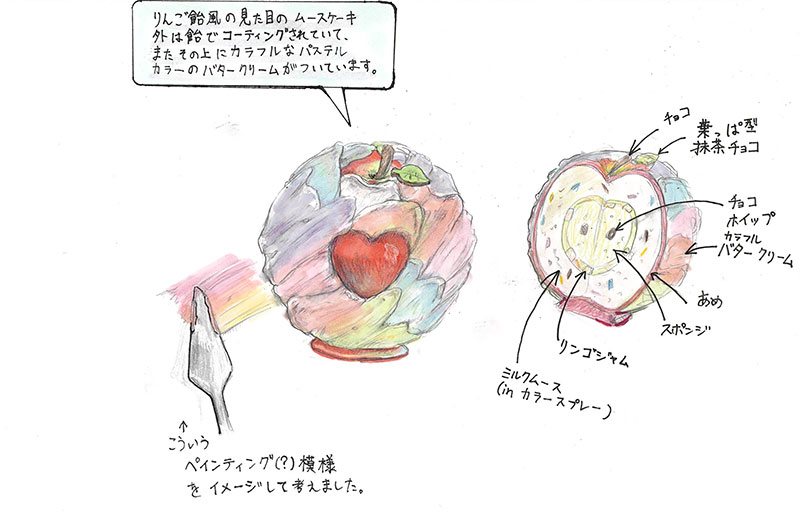 りんご飴風の見た目の ムースケーキ
外は飴でコーティングされていて、
またその上にカラフルなパステル
カラーのバタークリームがついています。
チョコ
葉っぱ型
抹茶チョコ
チョコ
ホイップ
カラフル
バタークリーム
あめ
スポンジ
リンゴジャム
ミルクムース
(in カラースプレー)
↑
こういう
ペインティング(?)模様
をイメージして考えました。